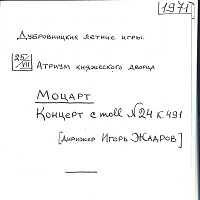 [1971]
Дубровницкие летние игры.
25/VII Атриум княжеского дворца
Моцарт
Концерт c moll N24 K.491
[Дирижер Игорь Жадров]